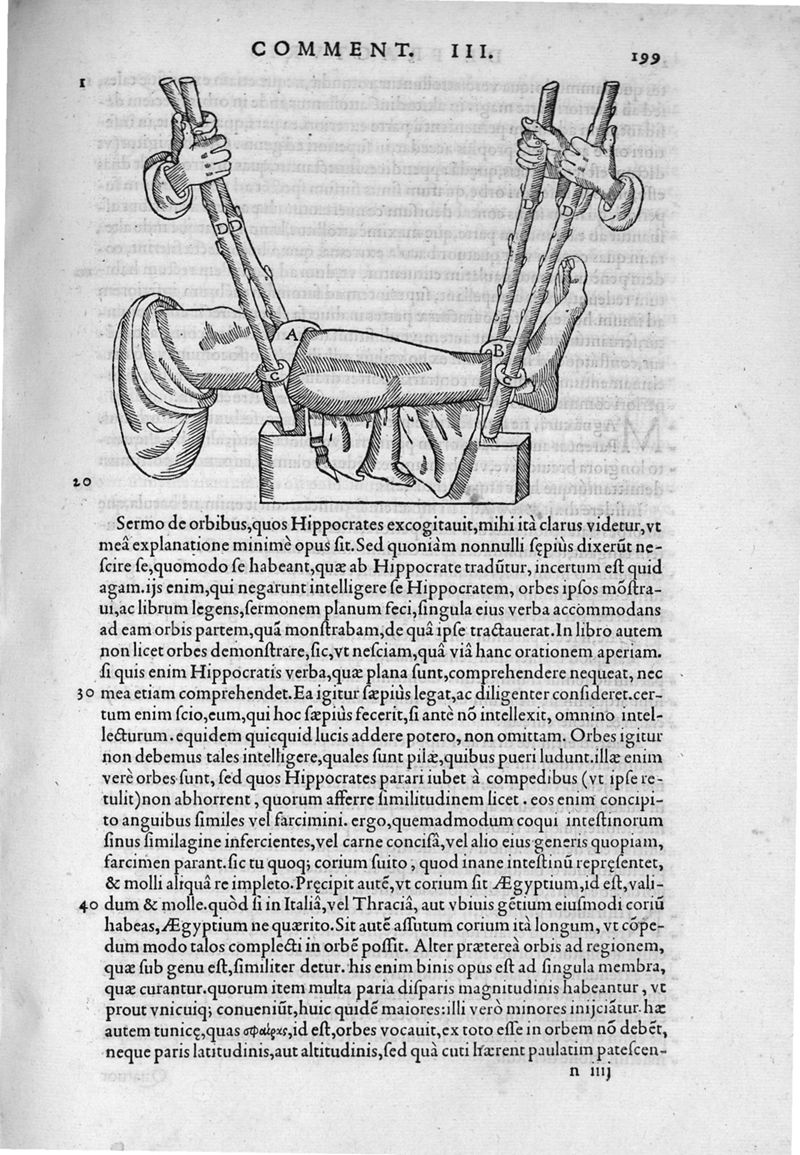 COMMENT. III. 199
1
D D
D D
A
B
C
C
20
Sermo de orbibus,quos Hippocrates excogitauit,mihi ità clarus videtur,vt
meâ explanatione minimè opus ſit.Sed quoniàm nonnulli ſępiùs dixerūt ne-
ſcire ſe,quomodo ſe habeant,quæ ab Hippocrate tradūtur, incertum eſt quid
agam.ijs enim,qui negarunt intelligere ſe Hippocratem, orbes ipſos mōſtra-
ui,ac librum legens,ſermonem planum feci,ſingula eius verba accommodans
ad eam orbis partem,quā monſtrabam,de quâ ipſe tractauerat.In libro autem
non licet orbes demonſtrare,ſic,vt neſciam,quâ viâ hanc orationem aperiam.
ſi quis enim Hippocratis verba,quæ plana ſunt,comprehendere nequeat, nec
30 mea etiam comprehendet.Ea igitur ſæpiùs legat,ac diligenter conſideret.cer-
tum enim ſcio,eum,qui hoc ſæpiùs fecerit,ſi antè nō intellexit, omnino intel-
lecturum. equidem quicquid lucis addere potero, non omittam. Orbes igitur
non debemus tales intelligere,quales ſunt pilæ,quibus pueri ludunt.illæ enim
verè orbes ſunt, ſed quos Hippocrates parari iubet à compedibus (vt ipſe re-
tulit)non abhorrent, quorum afferre ſimilitudinem licet. eos enim concipi-
to anguibus ſimiles vel farcimini. ergo,quemadmodum coqui inteſtinorum
ſinus ſimilagine infercientes,vel carne conciſâ,vel alio eius generis quopiam,
farcimen parant.ſic tu quoq; corium ſuito, quod inane inteſtinū repręſentet,
& molli aliquâ re impleto.Pręcipit autē,vt corium ſit Ægyptium,id eſt,vali-
40 dum & molle.quòd ſi in Italiâ,vel Thraciâ, aut vbiuis gētium eiuſmodi coriū
habeas,Ægyptium ne quærito.Sit autē aſſutum corium ità longum, vt cōpe-
dum modo talos complecti in orbē poſſit. Alter prætereà orbis ad regionem,
quæ ſub genu eſt,ſimiliter detur. his enim binis opus eſt ad ſingula membra,
quæ curantur.quorum item multa paria diſparis magnitudinis habeantur, vt
prout vnicuiq; conueniūt,huic quidē maiores:illi verò minores inijciātur. hæ
autem tunicę,quas σφαίρας,id eſt,orbes vocauit,ex toto eſſe in orbem nō debēt,
neque paris latitudinis,aut altitudinis,ſed quà cuti hærent paulatim pateſcen-
n iiij